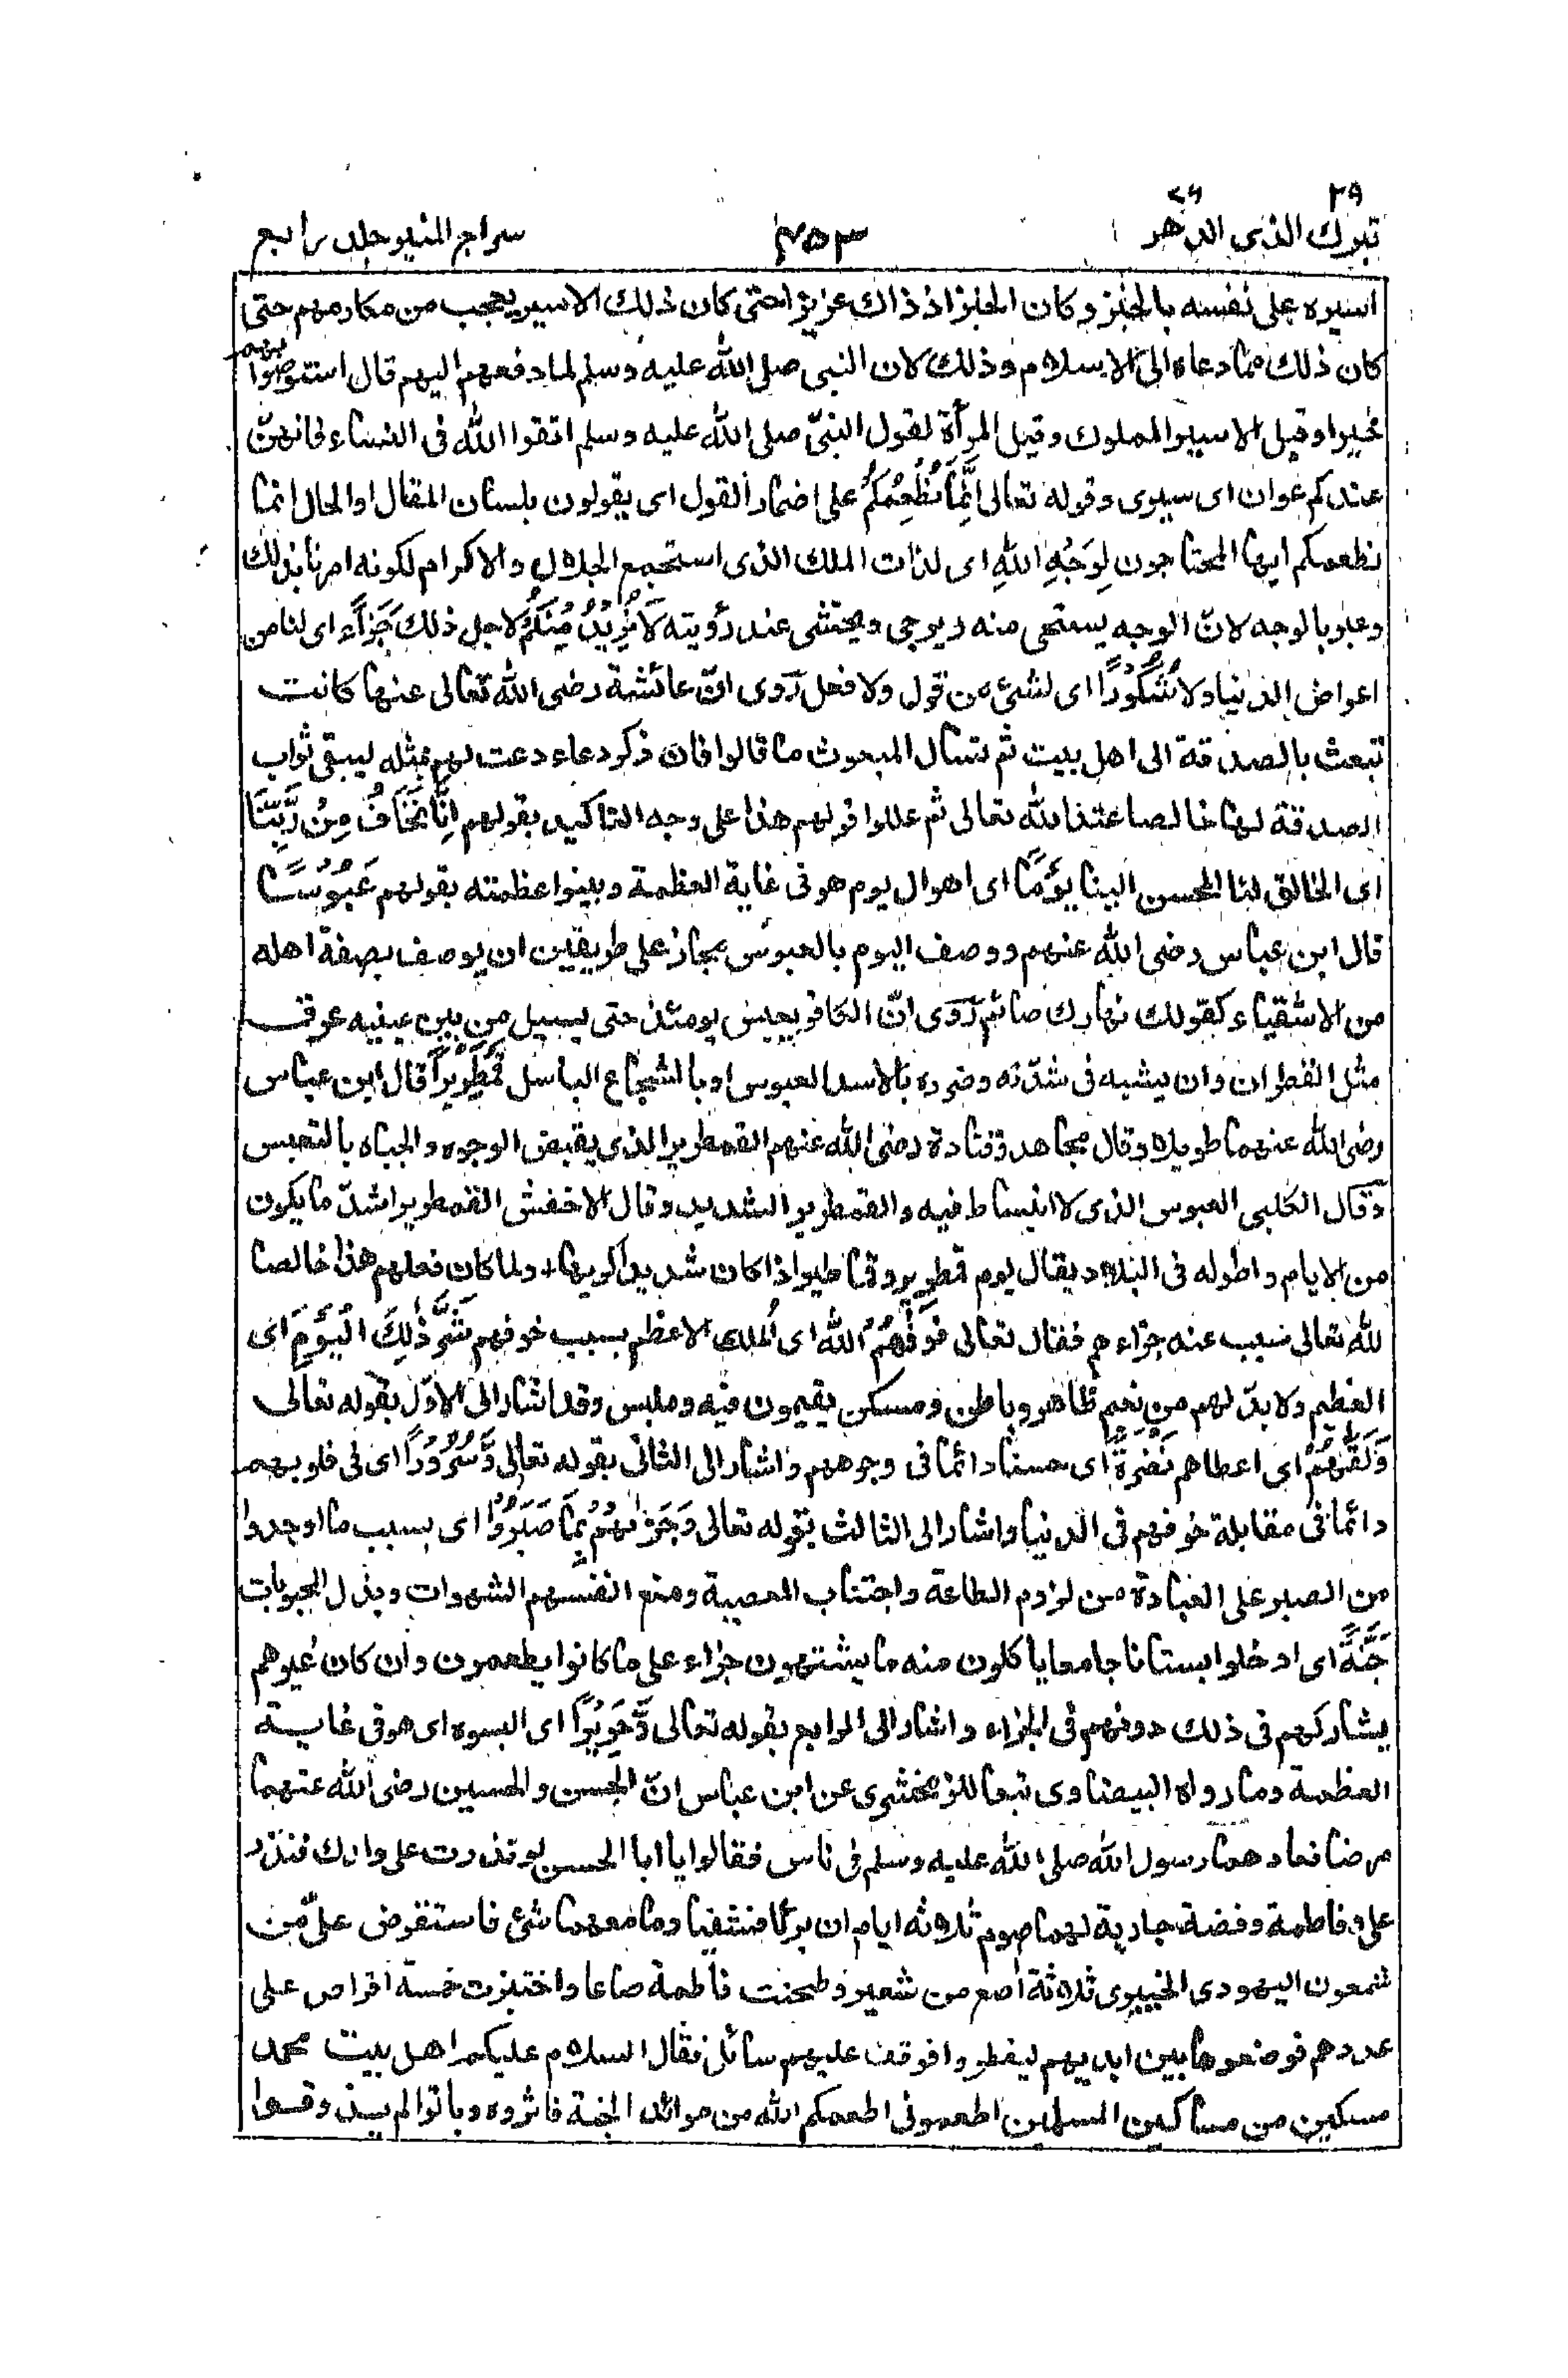 ٢٩ ٧٦
تبرك الذى الدهر ٤٥٣ سراج المنير جلد رابع
اسيره على نفسه بالخبز وكان الخبز اذ ذاك عزيزا حتى كان ذلك الاسير يعجب من مكارمهم حتى
كان ذلك مما دعاه الى الاسلام وذلك لان النبى صلى الله عليه وسلم لما دفعهم اليهم قال استوصوا بهم
خيرا وقيل الاسير المملوك وقيل المرأة لقول النبىّ صلى الله عليه وسلم اتقوا الله فى النساء فانهنّ
عندكم عوان اى سيرى وقوله تعالى اِنَّمَا نُطْعِمُكُمْ على اضمار القول اى يقولون بلسان المقال او الحال انما
نطعمكم ايها المحتاجون لِوَجْهِ اللّٰهِ اى لذات الملك الذى استجمع الجلال والاكرام لكونه امرنا بذلك
وعبر بالوجه لانّ الوجه يستحى منه ويرجى ويخشى عند رؤيته لَا نُرِيْدُ مِنْكُمْ لاجل ذلك جَزَآءً اى لنا من
اعراض الدنيا ولا شُكُوْرًا اى لشئ من قول ولا فعل رَوى انّ عائشة رضى الله تعالى عنها كانت
تبعث بالصدقة الى اهل بيت ثم تسال المبعوث ما قالوا فان ذكر دعاء دعت لهم بمثله ليبقى ثواب
الصدقة لها خالصا عند الله تعالى ثم عللوا قولهم هذا على وجه التاكيد بقولهم اِنَّا نَخَافُ مِنْ رَّبِّنَا
اى الخالق لنا المحسن الينا يَوْمًا اى اهوال يوم هو فى غاية العظمة وبينوا عظمته بقولهم عَبُوْسًا
قال ابن عباس رضى الله عنهم ووصف اليوم بالعبوس مجاز على طريقين ان يوصف بصفة اهله
من الاشقياء كقولك نهارك صائم رَوى انّ الكافر يعبس يومئذ حتى يسيل من بين عينيه عرق
مثل القطران وان يشبه فى شدّته وضرره بالاسد العبوس او بالشجاع الباسل قَمْطَرِيْرًا قال ابن عباس
رضى الله عنهما طويلا وقال مجاهد وقتادة رضى الله عنهم القمطرير الذى يقبض الوجوه والجباه بالتعبس
وَقال الكلبى العبوس الذى لا انبساط فيه والقمطرير الشديد وقال الاخفش القمطرير اشدّ ما يكون
من الايام واطوله فى البلاء يقال يوم قمطرير وقماطير اذا كان شديدا كريها ولما كان فعلهم هذا خالصا
لله تعالى سبب عنه جزاءهم فقال تعالى فَوَقٰهُمُ اللّٰهُ اى الملك الاعظم بسبب خوفهم شَرَّ ذٰلِكَ الْيَوْمِ اى
العظيم ولا بدّ لهم من نعيم ظاهر وباطن ومسكن يقيمون فيه وملبس وقد اشار الى الاوّل بقوله تعالى
وَلَقّٰهُمْ اى اعطاهم نَضْرَةً اى حسنا دائما فى وجوههم واشار الى الثانى بقوله تعالى وَّسُرُوْرًا اى فى قلوبهم
دائما فى مقابلة خوفهم فى الدنيا واشار الى الثالث بقوله تعالى وَجَزٰىهُمْ بِمَا صَبَرُوْا اى بسبب ما اوجدوا
من الصبر على العبادة من لزوم الطاعة واجتناب المعصية ومنع انفسهم الشهوات وبذل المحبوبات
جَنَّةً اى ادخلوا بستانا جامعا ياكلون منه ما يشتهون جزاء على ما كانوا يطعمون وان كان غيرهم
يشاركهم فى ذلك دونهم فى الجزاء واشار الى الرابع بقوله تعالى وَّحَرِيْرًا اى البسوه اى هو فى غاية
العظمة وما رواه البيضاوى تبعا للزمخشرى عن ابن عباس انّ الحسن والحسين رضى الله عنهما
مرضا فعادهما رسول الله صلى الله عليه وسلم فى ناس فقالوا يا ابا الحسن لو نذرت على ولدك فنذر
على وفاطمة وفضة جارية لهما صوم ثلاثه ايام ان برئا فشفيا وما معهما شئ فاستقرض علىّ من
شمعون اليهودى الخيبرى ثلاثة اصع من شعير وطحنت فاطمة صاعا واختبزت خمسة اقراص على
عددهم فوضعوها بين ايديهم ليفطروا فوقف عليهم سائل فقال السلام عليكم اهل بيت محمد
مسكين من مساكين المسلمين اطعمونى اطعمكم الله من موائد الجنة فاثروه وباتوا لم يذوقوا